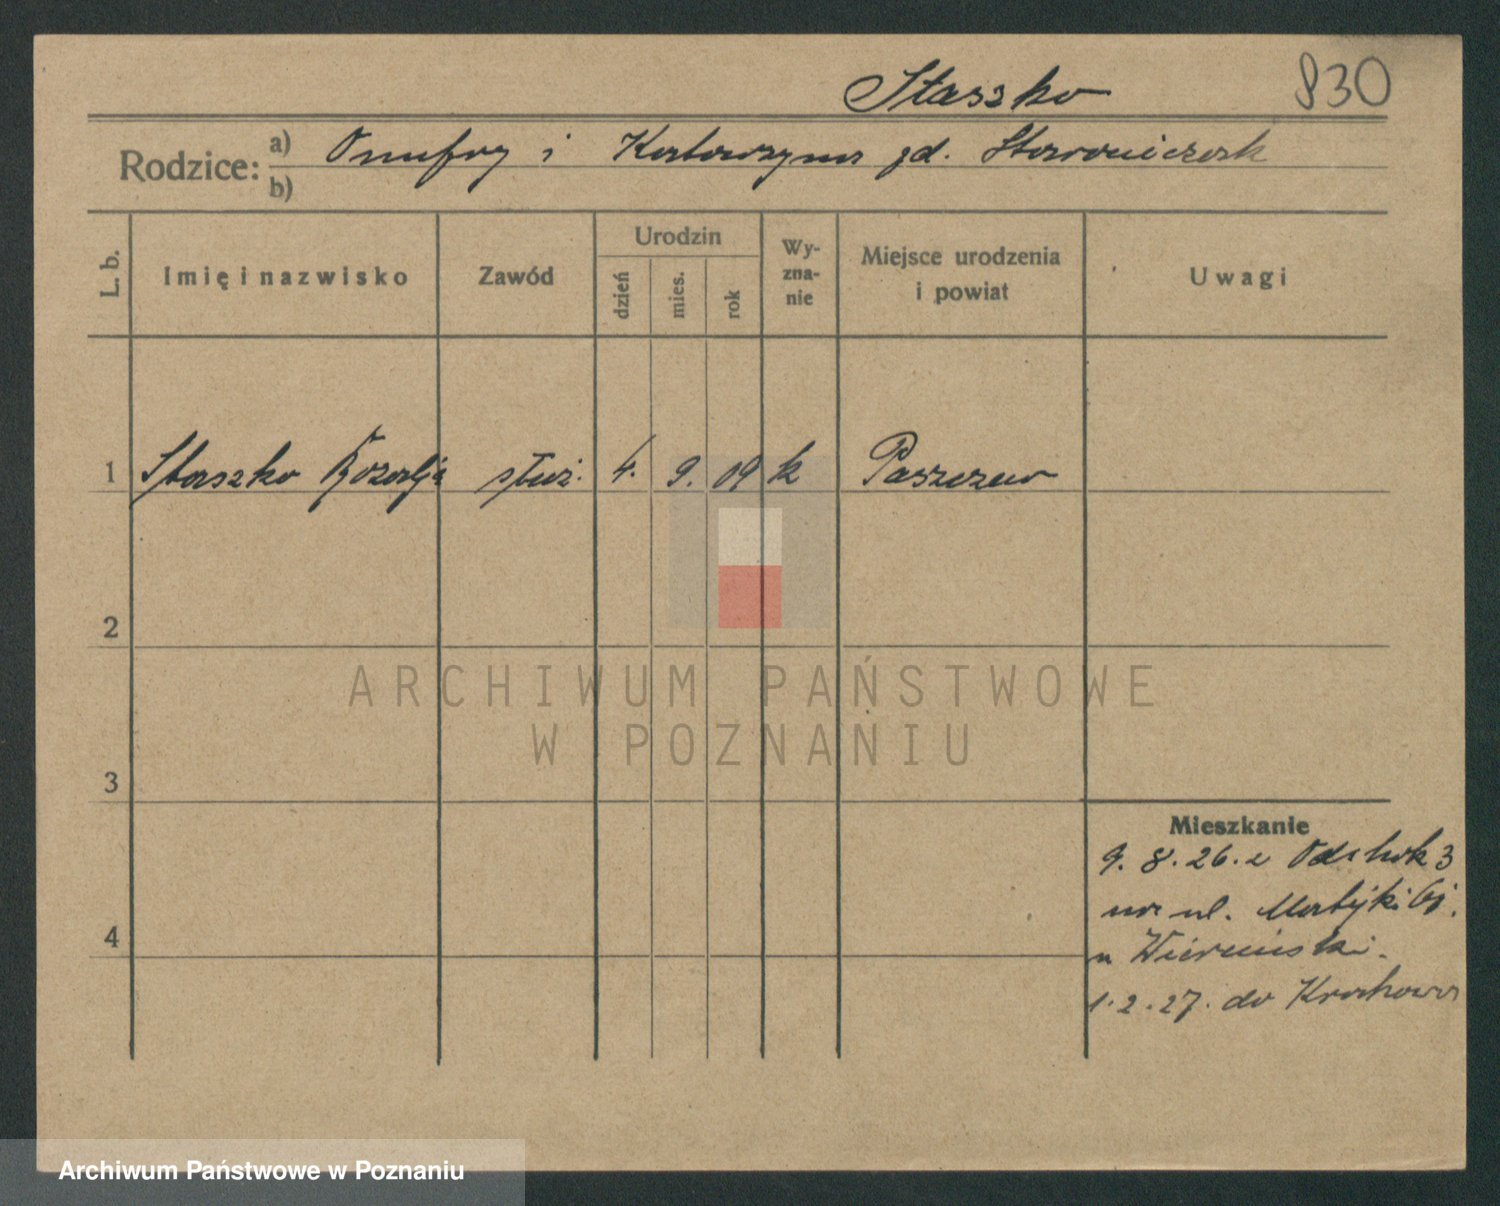 Staszko 830
Rodzice: a) Onufry i Katarzyna zd. Staroniczak
b)
L. b. Imię i nazwisko Zawód Urodzin dzień mies. rok Wyznanie Miejsce urodzenia i powiat Uwagi
1 Staszko Rozalja służ. 4. 9. 09 k Paszczew
2
ARCHIWUM PAŃSTWOWE
W POZNANIU
3
Mieszkanie
9. 8. 26. z 3
na ul. Matejki 61.
4
u
1. 2. 27. do Krakowa
Archiwum Państwowe w Poznaniu